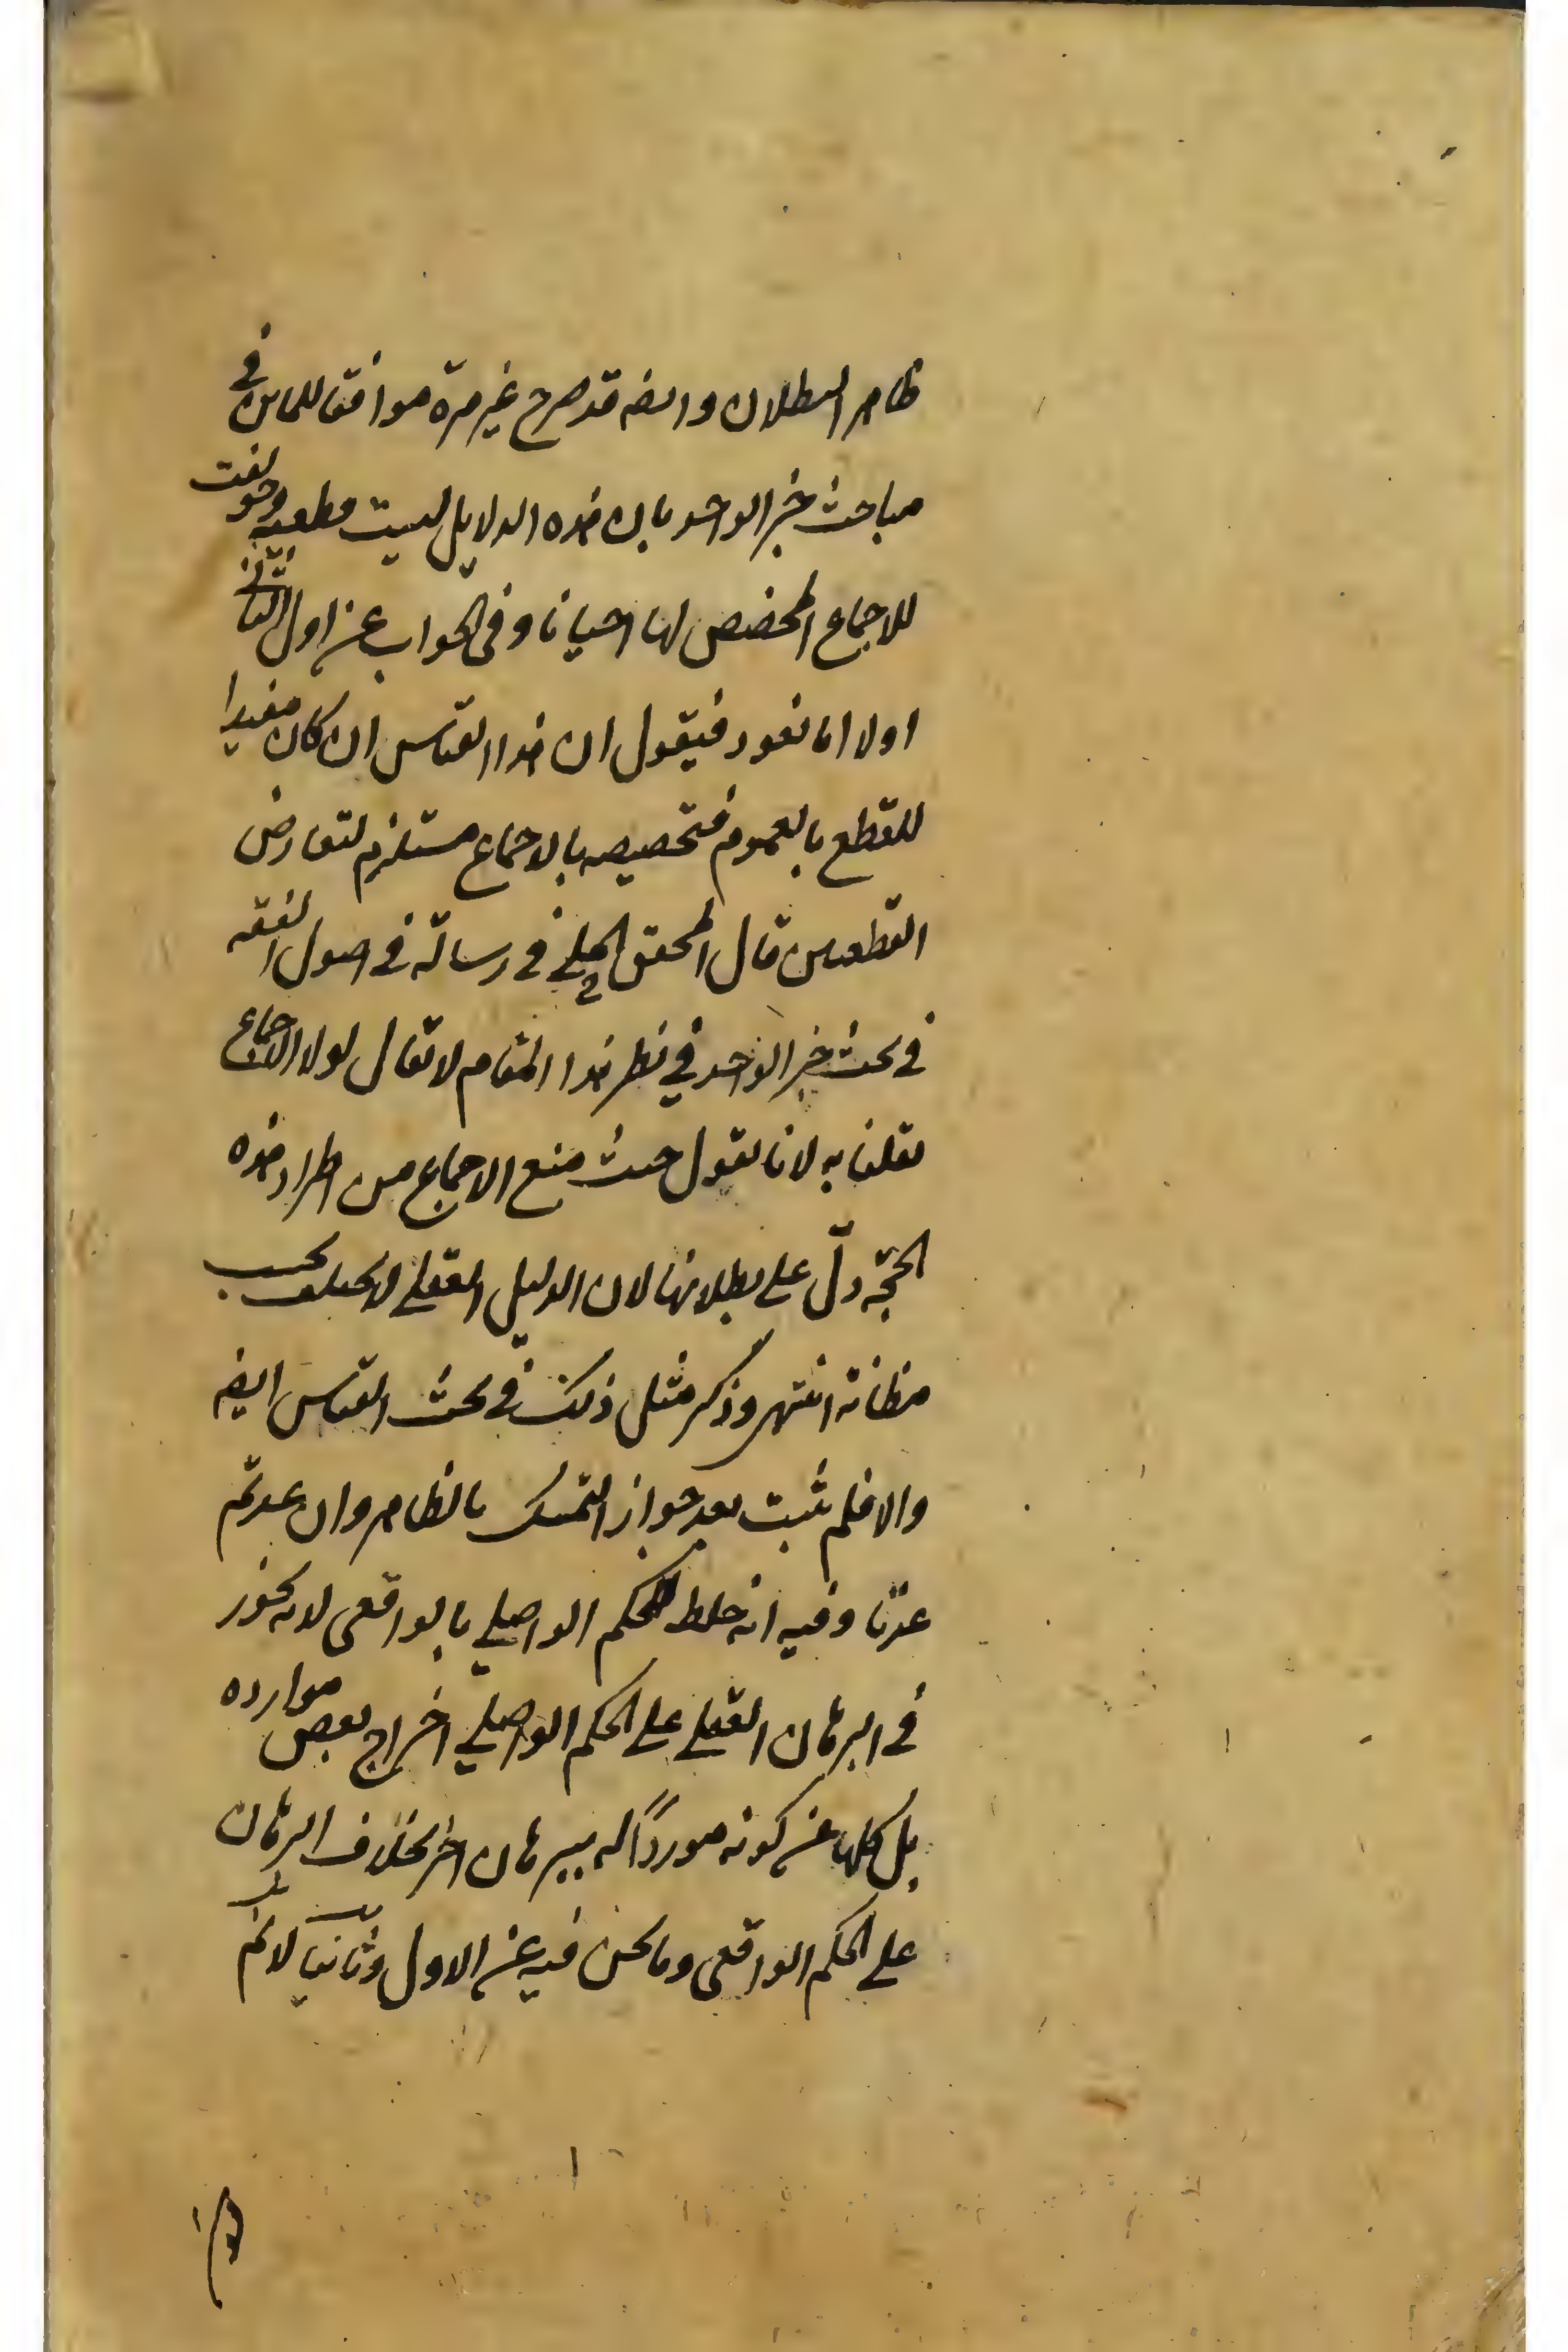 ظاهر البطلان وايضه قد صرح غير مرة موافقا للماتن في
مباحث خبر الواحد بان هذه الدلايل ليست قطعيه وخولفت
للاجماع المخصص لها احيانا وفى الجواب عن اول الثانى
اولا انا نعود فيقول ان هذا القياس ان كان مفيدا
للقطع بالعموم فتخصيصه بالاجماع مستلزم لتعارض
القطعيين قال المحقق الحلي في رسالته في اصول الفقه
في بحث خبر الواحد في نظير هذا المقام لا تقال لولا الاجماع
لقلنا به لانا نقول حيث منع الاجماع من اطراد هذه
الحجّة دلّ على بطلانها لان الدليل العقلي لا يختلف بحسب
مظانه انتهى وذكر مثل ذلك في بحث القياس ايضه
والا فلم يثبت بعد جواز التمسك بالظاهر وان عدتم
عدنا وفيه انه خلط للحكم الواصلي بالواقعى لانه يجوز
في البرهان العقلي على الحكم الواصلي اخراج بعض موارده
بل كلها عن كونه موردا له ببرهان اخر بخلاف البرهان
على الحكم الواقعى وما نحن فيه عن الاول وثانيا لانم